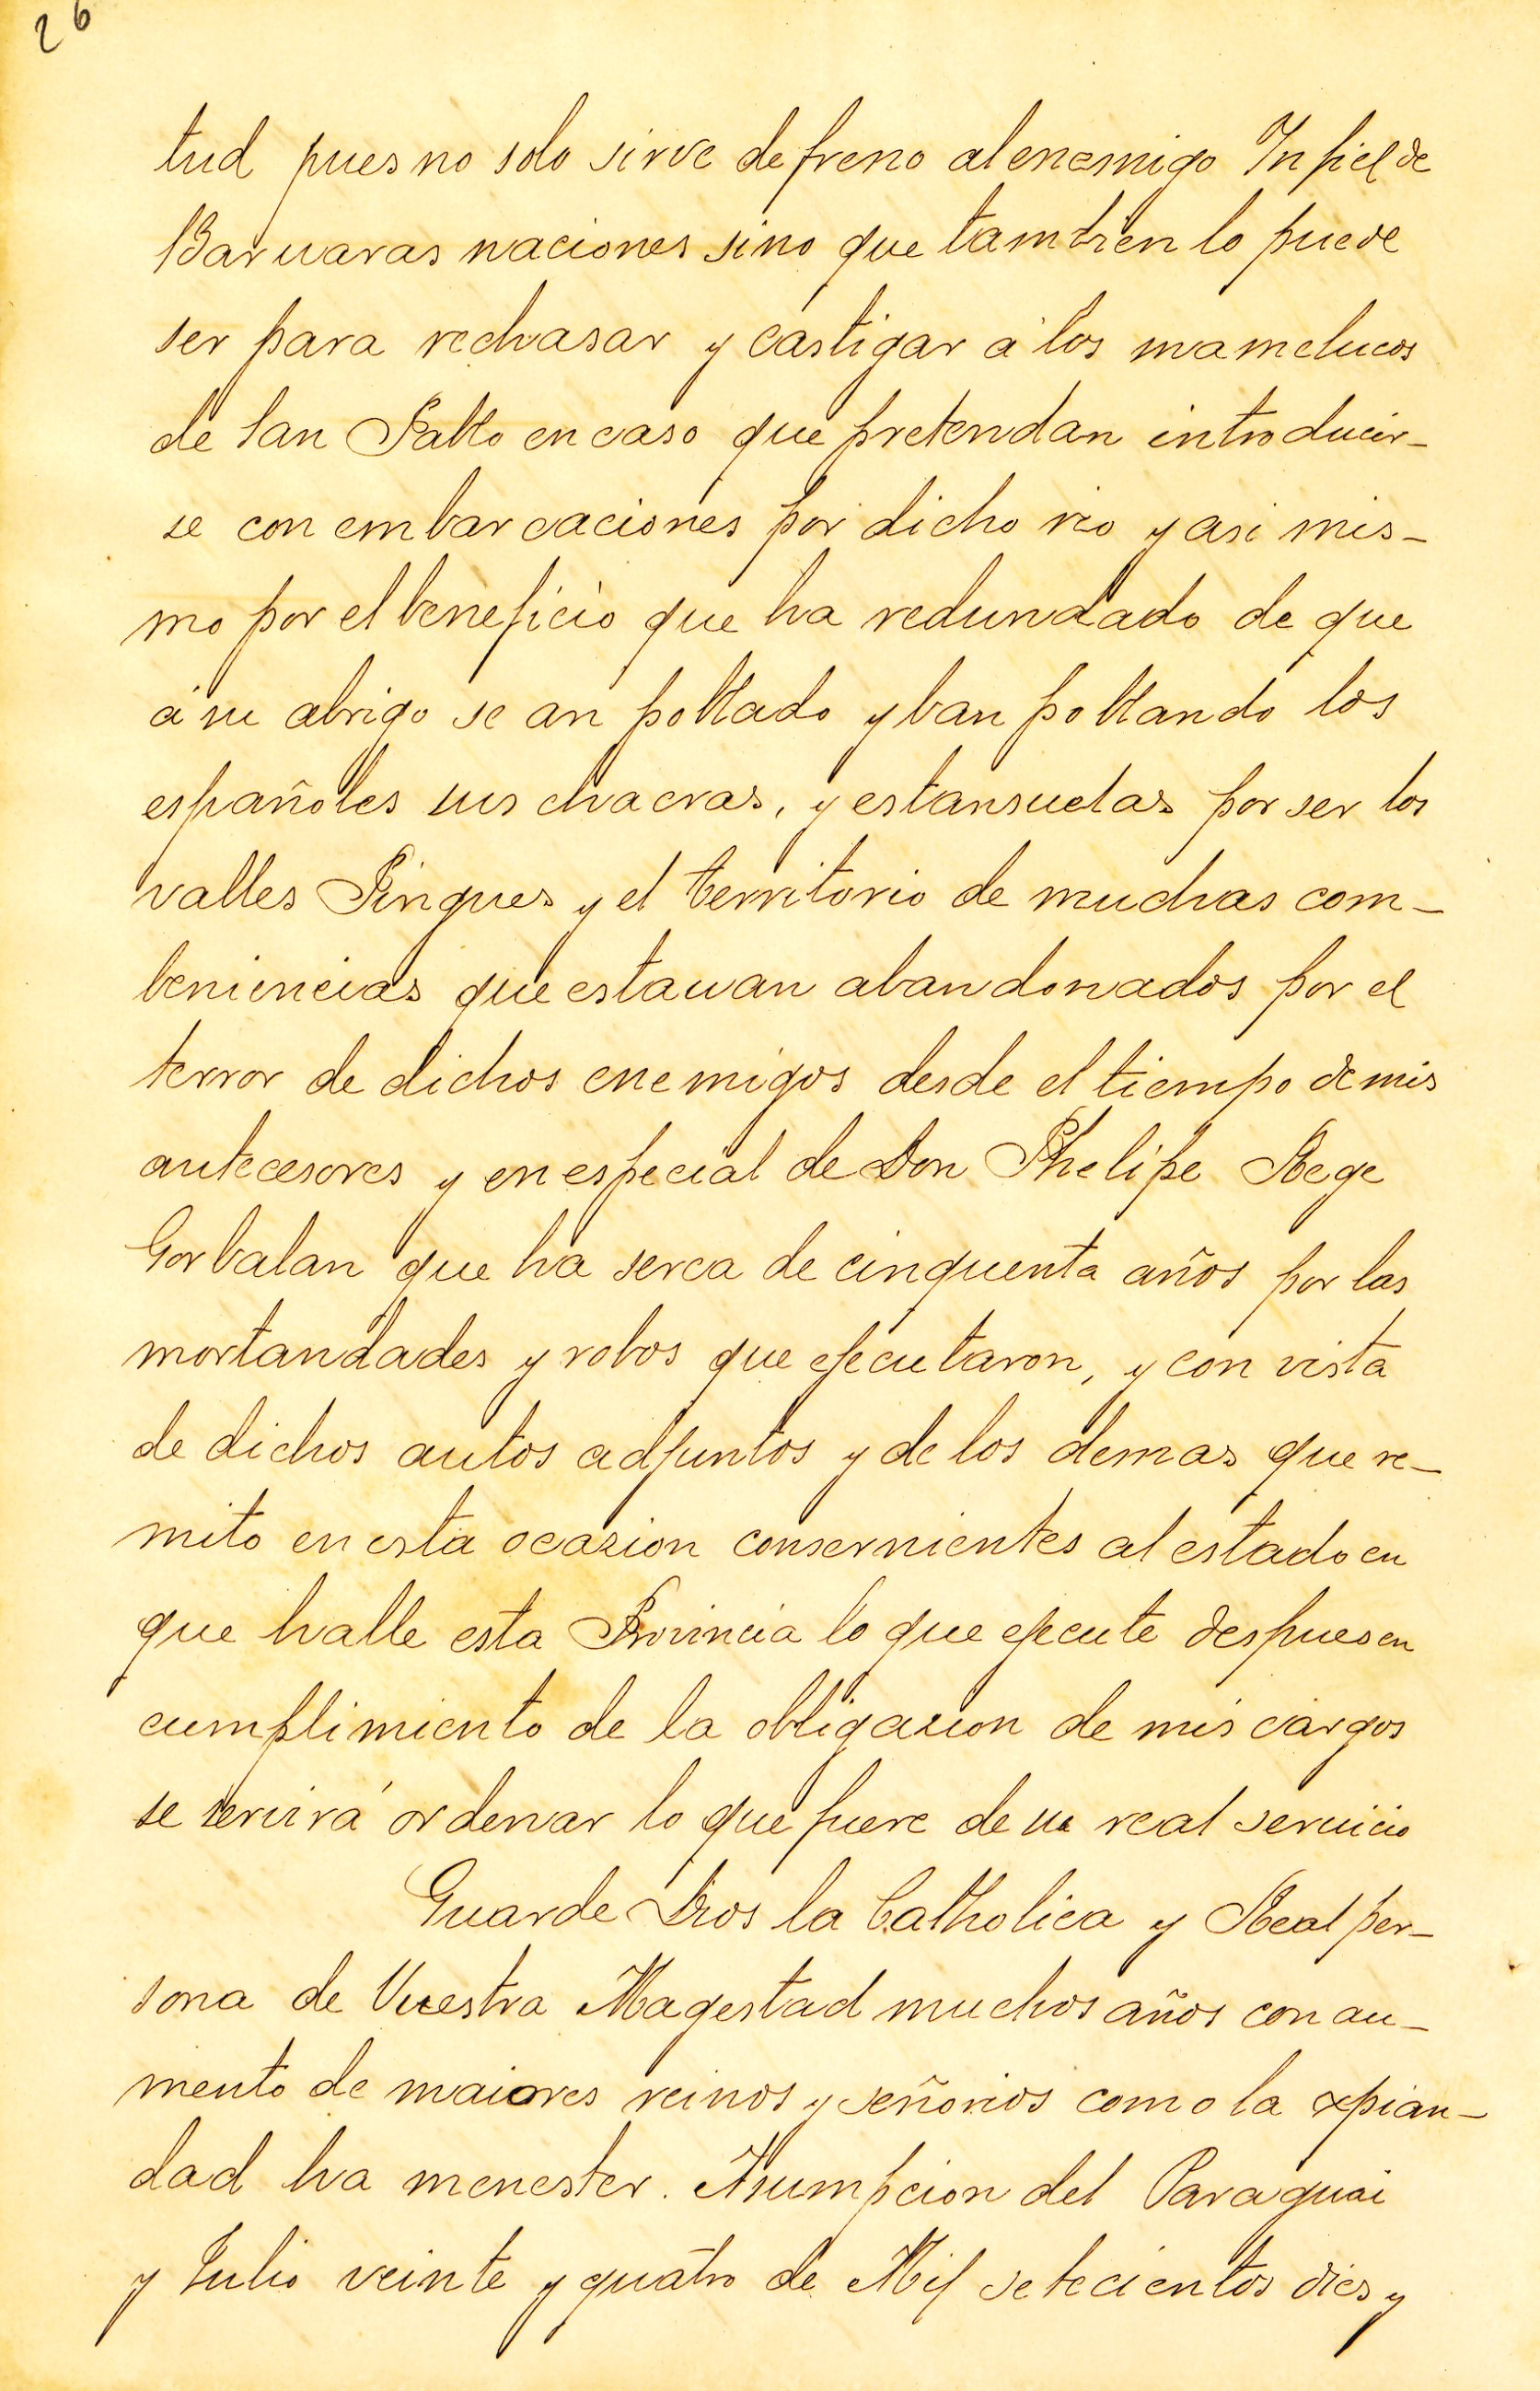 26
tud pues no solo sirve de freno al enemigo Infiel de
Baruaras naciones sino que tambien lo puede
ser para rechasar y castigar á los mamelucos
de San Pablo en caso que pretendan introducir-
se con embarcaciones por dicho rio y asi mis-
mo por el beneficio que ha redundado de que
á su abrigo se an poblado y ban poblando los
españoles sus chacras, y estansuelas por ser los
valles Pingues y el territorio de muchas com-
beniencias que estauan abandonados por el
terror de dichos enemigos desde el tiempo de mis
antecesores y en especial de Don Phelipe Rege
Gorbalan que ha serca de cinquenta años por las
mortandades y robos que ejecutaron, y con vista
de dichos autos adjuntos y de los demas que re-
mito en esta ocazion consernientes al estado en
que halle esta Provincia lo que ejecute despues en
cumplimiento de la obligazion de mis cargos
se seruirá ordenar lo que fuere de su real seruicio
Guarde Dios la Catholica y Real per-
sona de Vuestra Magestad muchos años con au-
mento de maiores reinos y señorios como la xpian-
dad ha menester. Asumpcion del Paraguai
y Julio veinte y quatro de Mil setecientos dies y